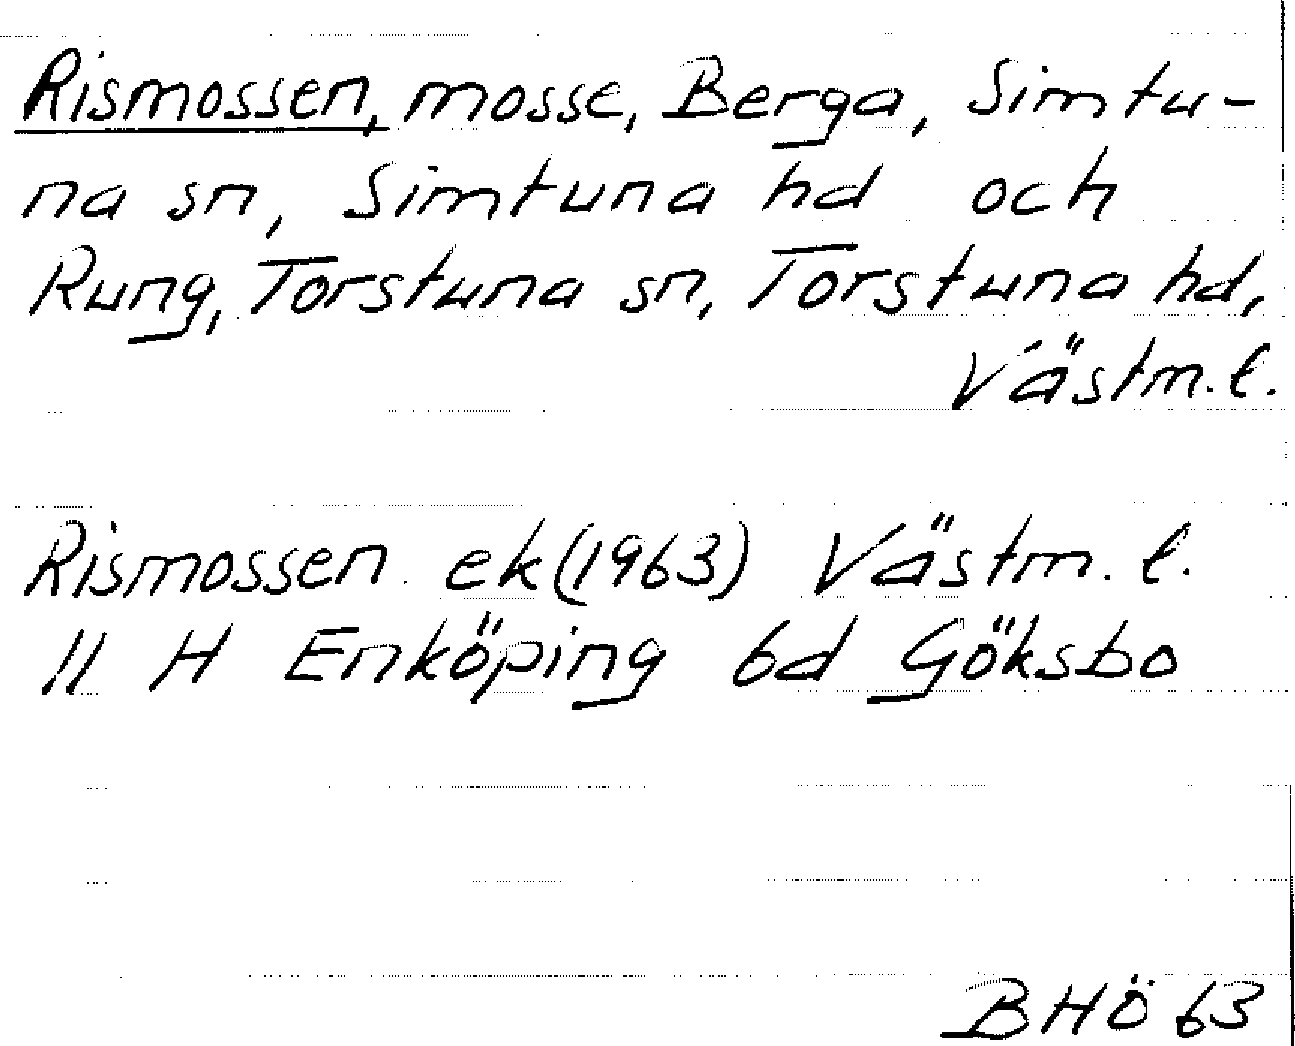 Rismossen, mosse, Berga, Simtu-
na sn, Simtuna hd och
Rung, Torstuna sn, Torstuna hd,
Västm. l.
Rismossen ek (1963) Västm. l.
11 H Enköping 6d Göksbo
BHÖ 63